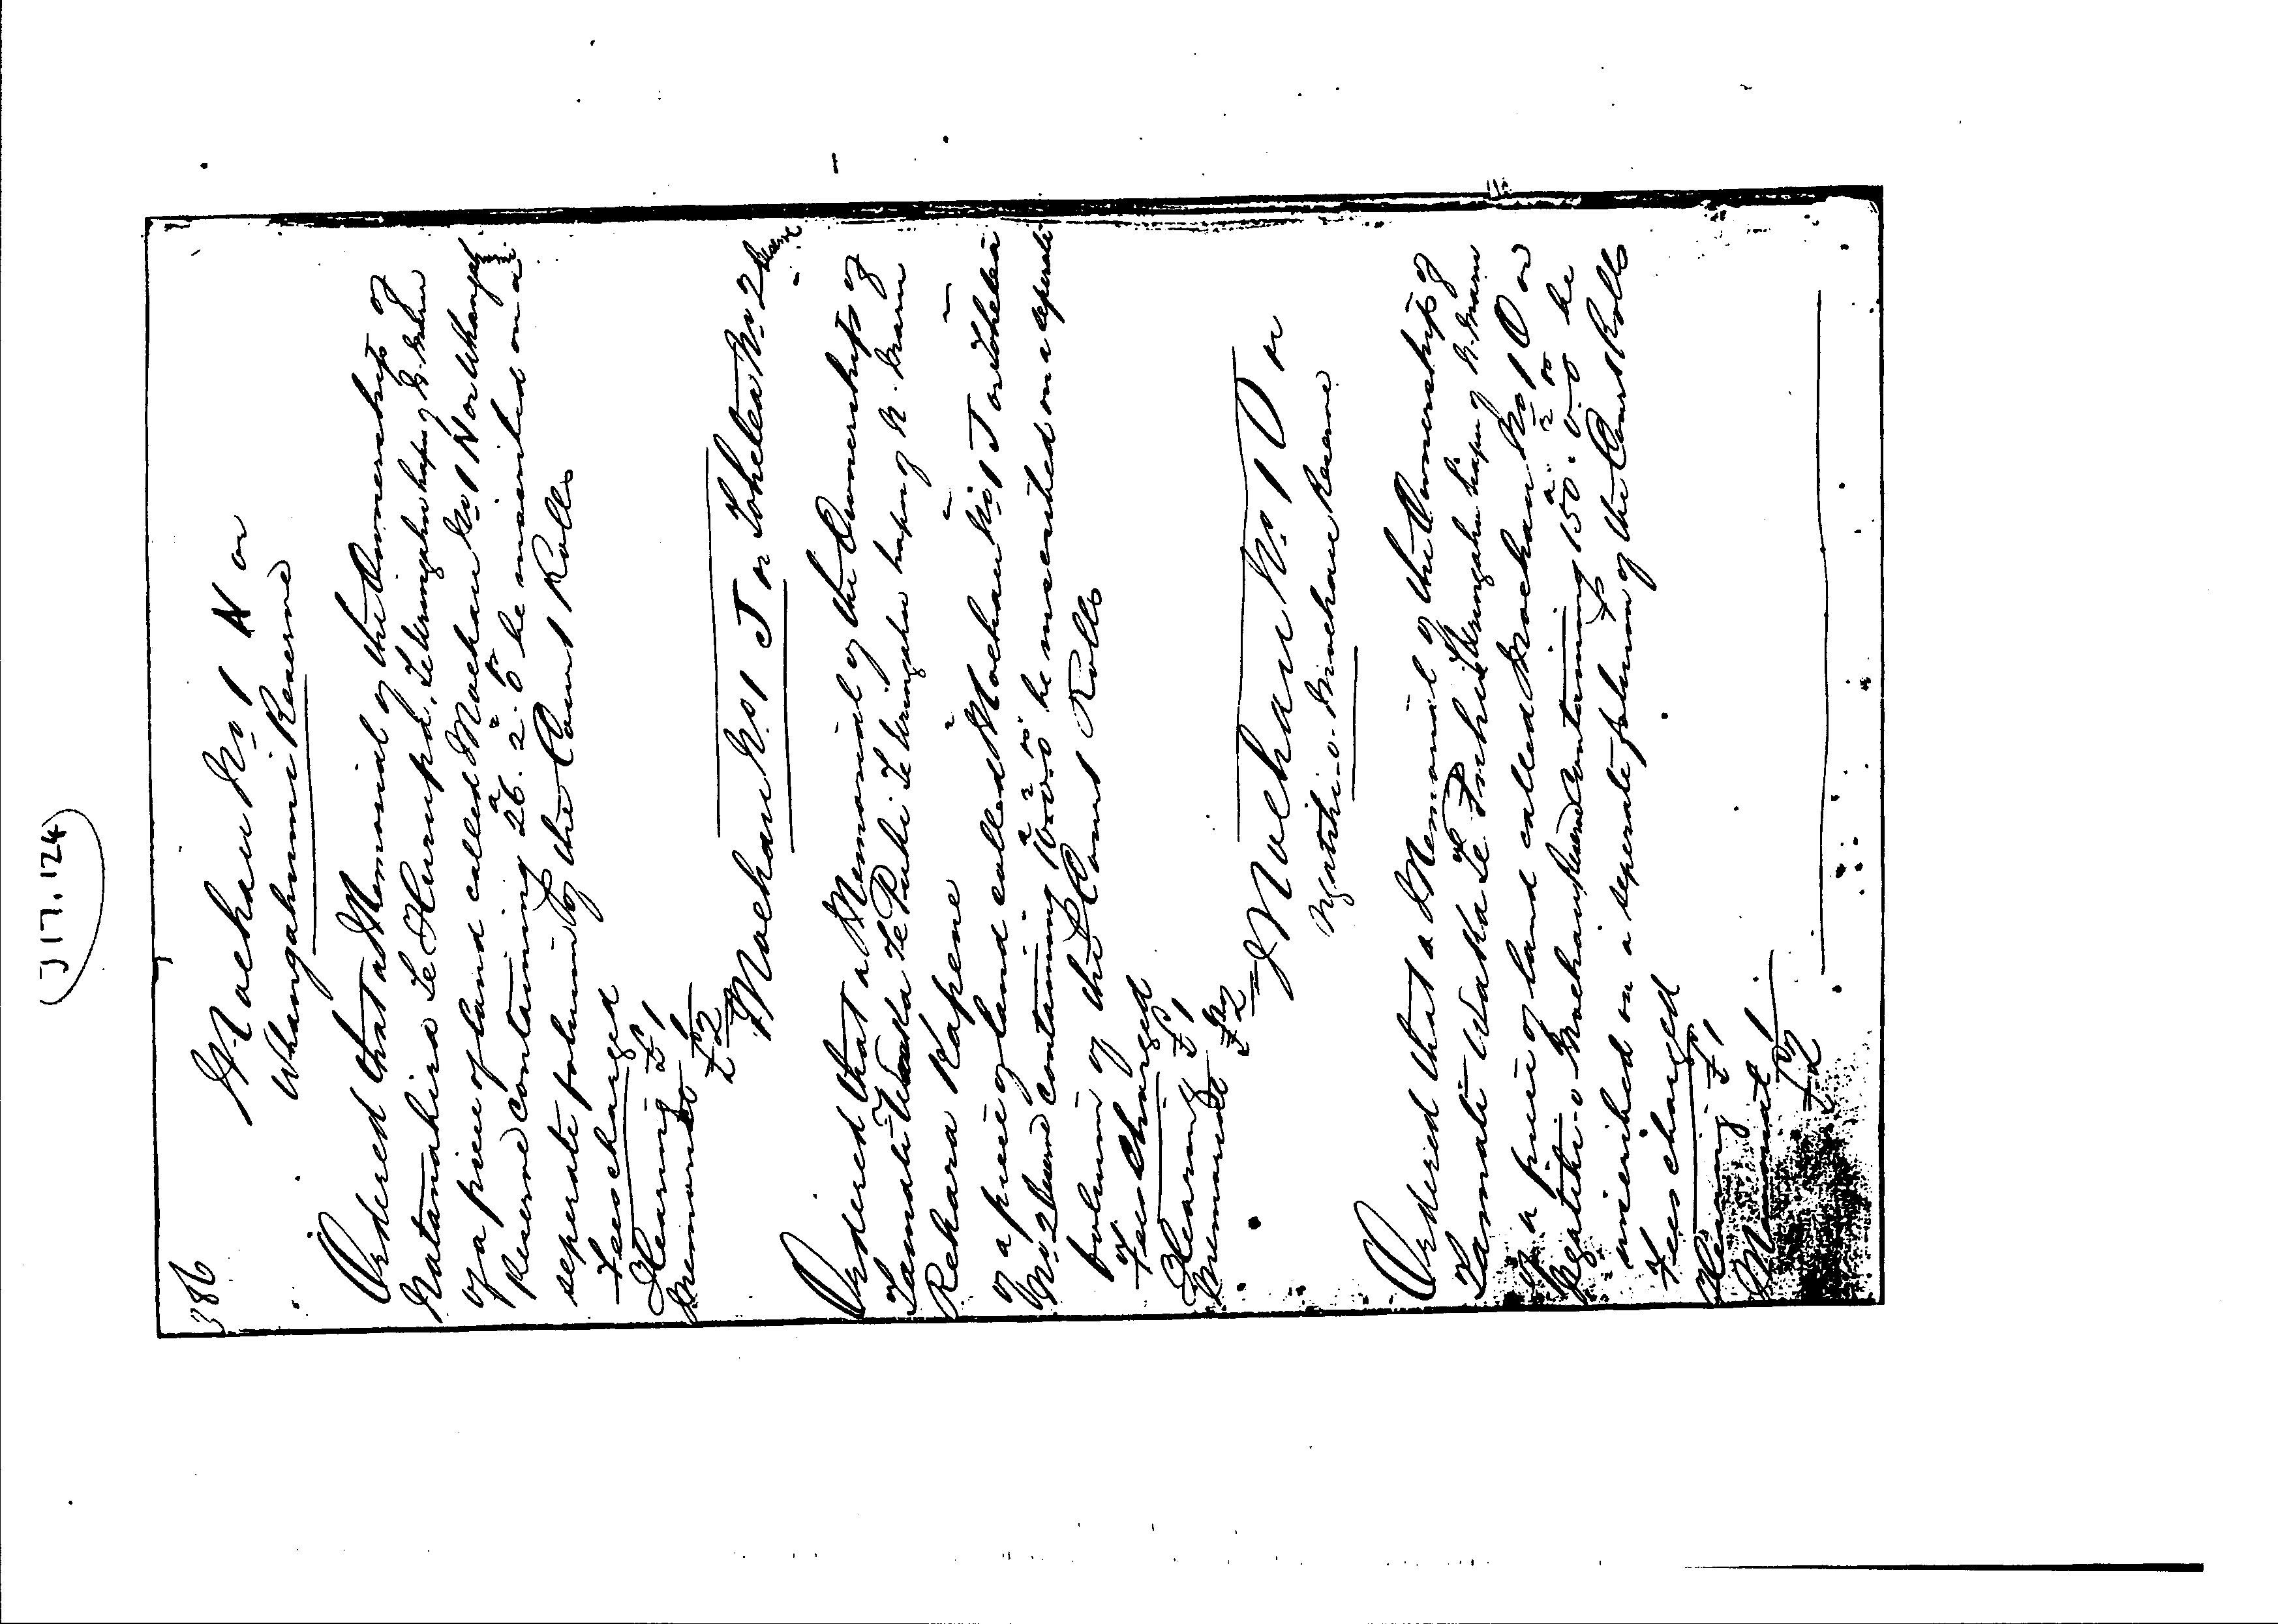 J 17.124
386
Moehau No 1 N or
Whangahumi Reserve
Ordered that a Memorial of the Ownership of
Matanahira Te Hurupa, Te Uringahu hapu of N. Maru
of a piece of land called Moehau No 1 N or Whangahumi
Reserve containing 26a. 2r. 0p be inscribed on a
seperate folium of the Court Rolls
Fees charged
Hearing £1
Memorial 1
£2
Moehau No. 1 J or Tokatea No. 2 Reserve
Ordered that a Memorial of the Ownership of
Tamati Waka Te Puhi Te Uringahu hapu of N. Maru
Rehara Kapene
of a piece of land called Moehau No 1 J or Tokatea
No. 2 Reserve containing 10a.0r.0p be inscribed on a seperate
folium of the Court Rolls
Fees Charged
Hearing £1
Memorial
£2
Moehau No. 1 O or
Ngatiki-o-Moehau Reserve
Ordered that a Memorial of the Ownership of
Tamati Waka Te Puhi Te Uringahu hapu of N. Maru
of a piece of land called Moehau No 1 O or
Ngatiki-o-Moehau Reserve containing 150a. 0r. 0p be
inscribed on a seperate folium of the Court Rolls
Fees charged
Hearing £1
Memorial 1
£2